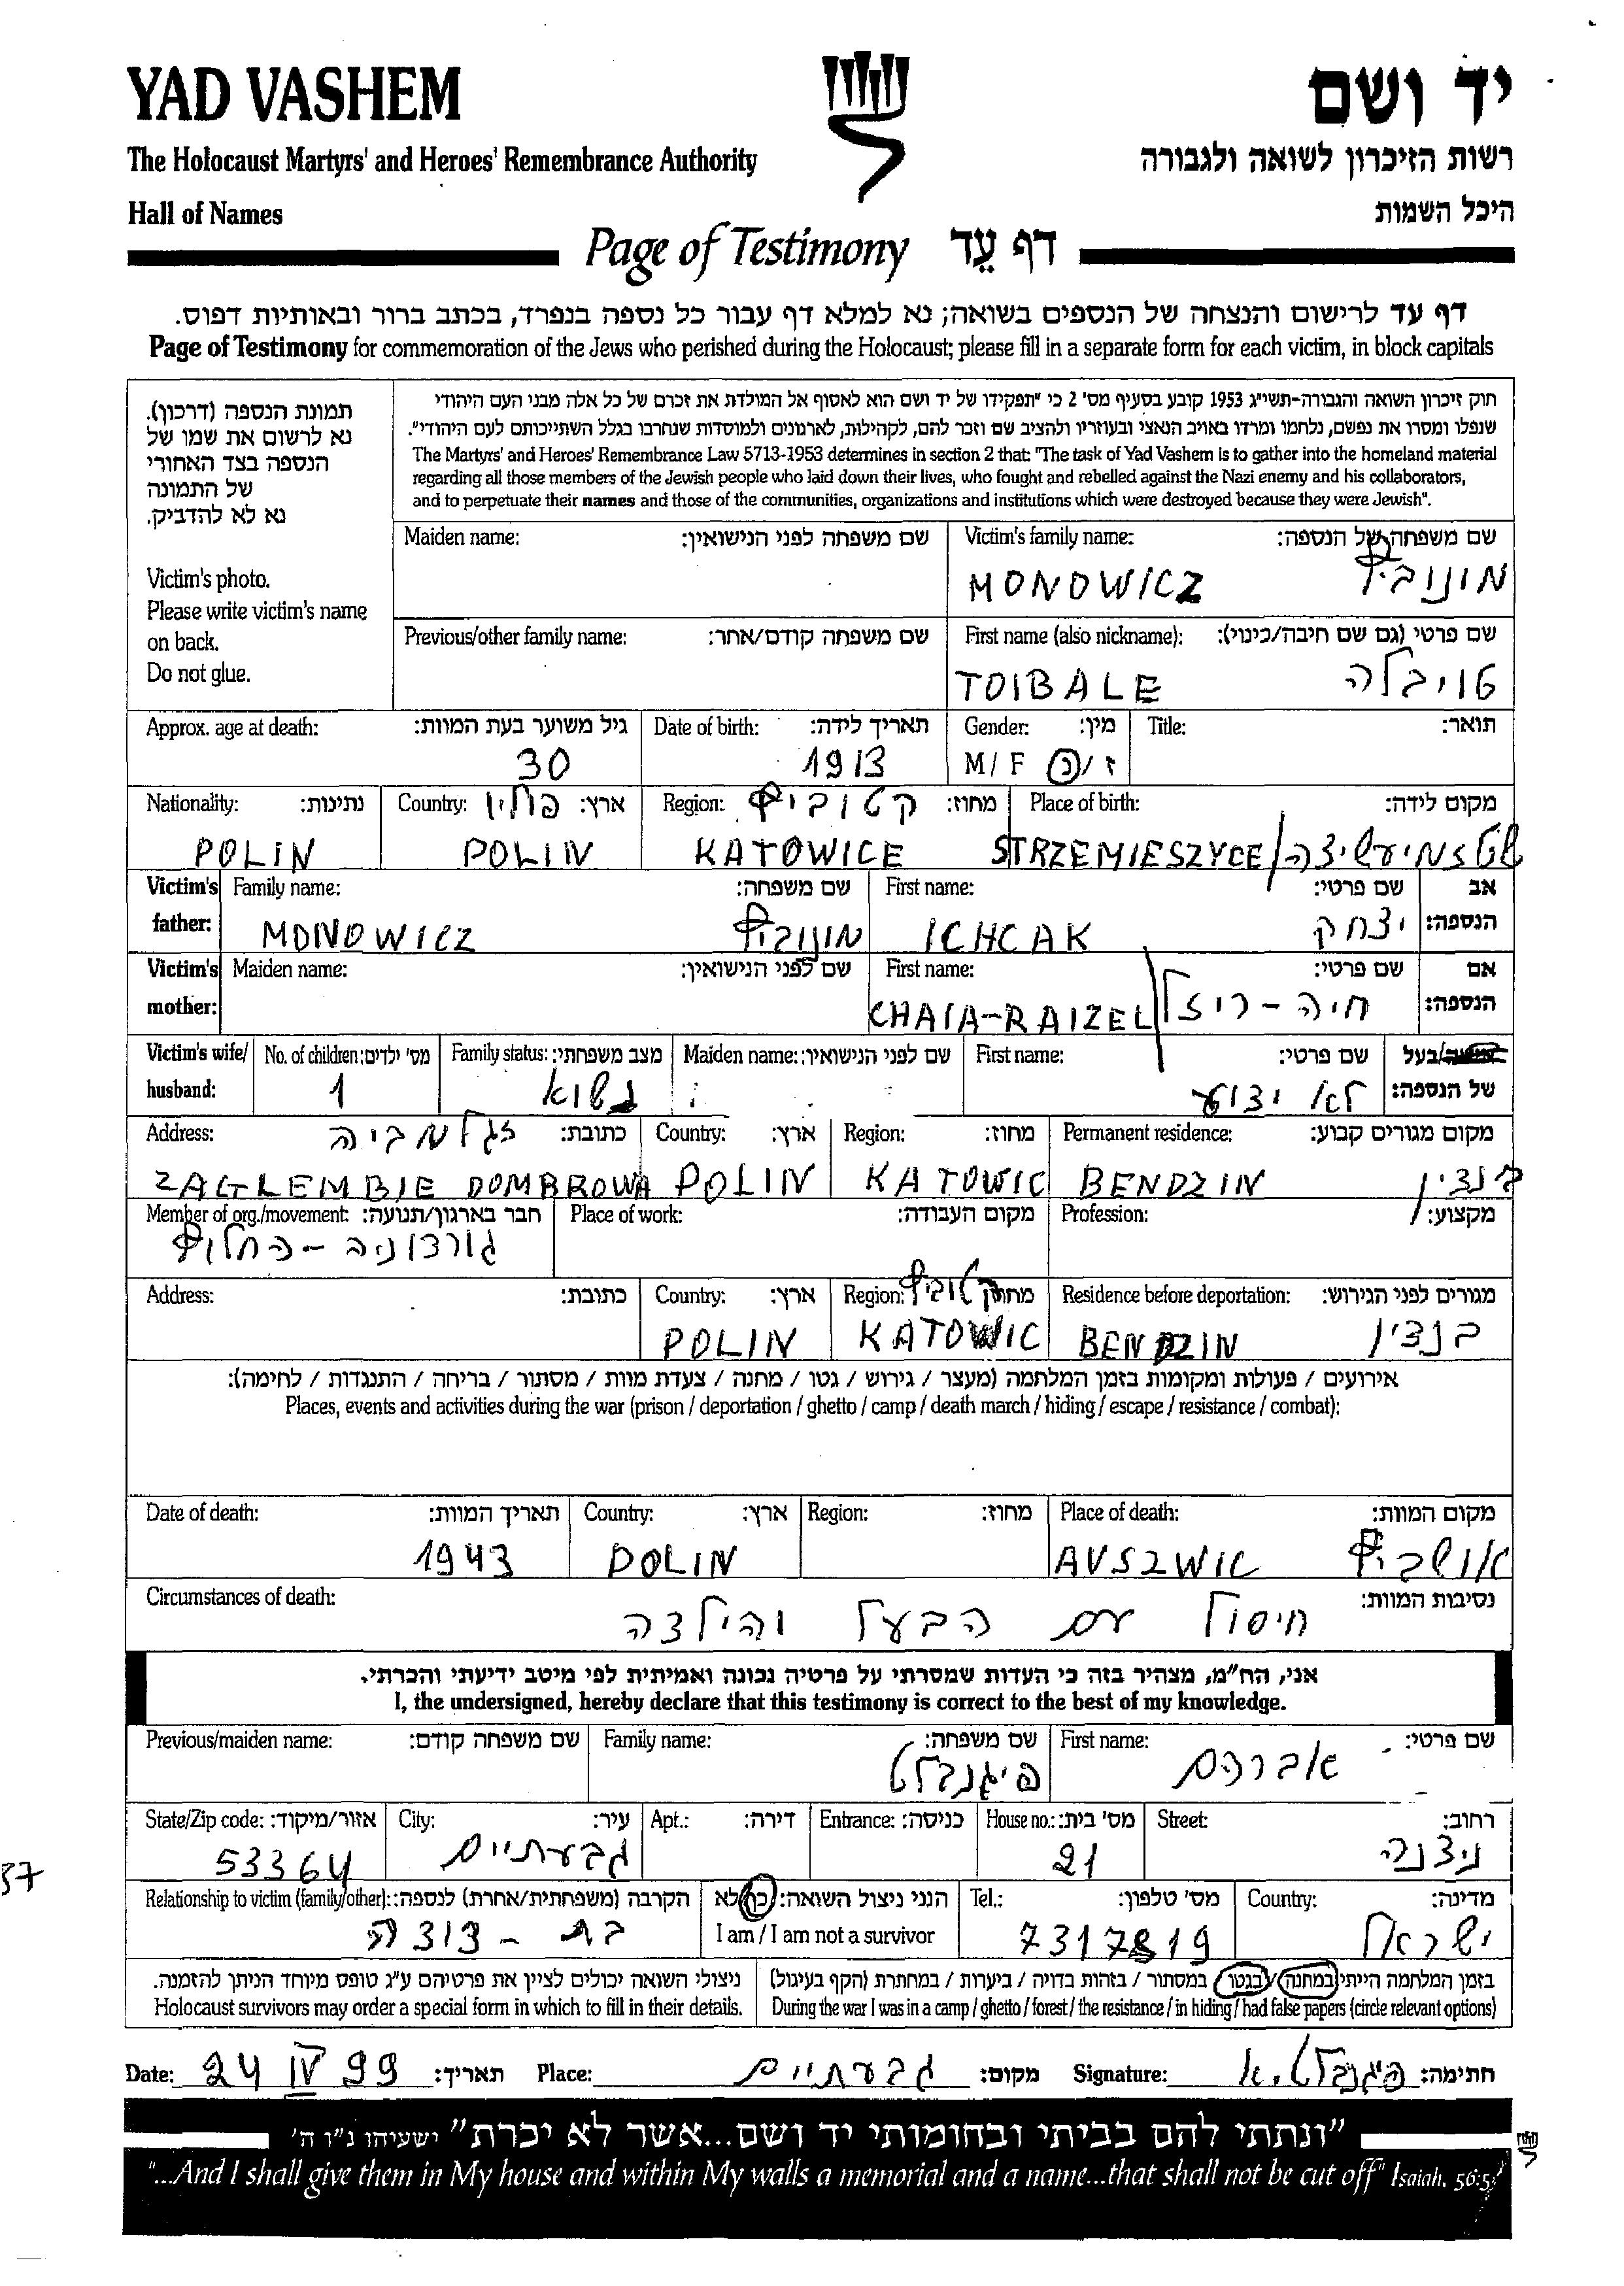 YAD VASHEM יד ושם
The Holocaust Martyrs' and Heroes' Remembrance Authority רשות הזיכרון לשואה ולגבורה
Hall of Names היכל השמות
Page of Testimony דף עֵד
דף עד לרישום והנצחה של הנספים בשואה; נא למלא דף עבור כל נספה בנפרד, בכתב ברור ובאותיות דפוס.
Page of Testimony for commemoration of the Jews who perished during the Holocaust; please fill in a separate form for each victim, in block capitals
תמונת הנספה (דרכון).
נא לרשום את שמו של
הנספה בצד האחורי
של התמונה
נא לא להדביק.
Victim's photo.
Please write victim's name
on back.
Do not glue.
חוק זיכרון השואה והגבורה-תשי"ג 1953 קובע בסעיף מס' 2 כי "תפקידו של יד ושם הוא לאסוף אל המולדת את זכרם של כל אלה מבני העם היהודי
שנפלו ומסרו את נפשם, נלחמו ומרדו באויב הנאצי ובעוזריו ולהציב שם וזכר להם, לקהילות, לארגונים ולמוסדות שנחרבו בגלל השתייכותם לעם היהודי".
The Martyrs' and Heroes' Remembrance Law 5713-1953 determines in section 2 that: "The task of Yad Vashem is to gather into the homeland material
regarding all those members of the Jewish people who laid down their lives, who fought and rebelled against the Nazi enemy and his collaborators,
and to perpetuate their names and those of the communities, organizations and institutions which were destroyed because they were Jewish".
Maiden name: שם משפחה לפני הנישואין: Victim's family name: שם משפחה של הנספה:
MONOWICZ מונוביץ
Previous/other family name: שם משפחה קודם/אחר: First name (also nickname): שם פרטי (גם שם חיבה/כינוי):
TOIBALE טויבלה
Approx. age at death: גיל משוער בעת המוות: Date of birth: תאריך לידה: Gender: מין: Title: תואר:
30 1913 M/F ז/נ
Nationality: נתינות: Country: ארץ: פולין Region: מחוז: קטוביץ Place of birth: מקום לידה:
POLIN POLIN KATOWICE STRZEMIESZYCE/
Victim's father: Family name: שם משפחה: First name: שם פרטי: אב הנספה:
MONOWICZ מונוביץ ICHCAK יצחק
Victim's mother: Maiden name: שם לפני הנישואין: First name: שם פרטי: אם הנספה:
CHAIA-RAIZEL חיה-ריזל
Victim's wife/ husband: No. of children: מס' ילדים: Family status: מצב משפחתי: Maiden name: שם לפני הנישואין: First name: שם פרטי: /בעל של הנספה:
1 נשוא לא ידוע
Address: כתובת: זגלמביה Country: ארץ: Region: מחוז: Permanent residence: מקום מגורים קבוע:
ZAGLEMBIE DOMBROWA POLIN KATOWIC BENDZIN בנדצין
Member of org./movement: חבר בארגון/תנועה: Place of work: מקום העבודה: Profession: מקצוע:
גורדוניה-החלוץ
Address: כתובת: Country: ארץ: Region: מחוז: קטוביץ Residence before deportation: מגורים לפני הגירוש:
POLIN KATOWIC BENDZIN בנצין
אירועים / פעולות ומקומות בזמן המלחמה (מעצר / גירוש / גטו / מחנה / צעדת מוות / מסתור / בריחה / התנגדות / לחימה):
Places, events and activities during the war (prison / deportation / ghetto / camp / death march / hiding / escape / resistance / combat):
Date of death: תאריך המוות: Country: ארץ: Region: מחוז: Place of death: מקום המוות:
1943 POLIN AUSZWIC אושביץ
Circumstances of death: נסיבות המוות:
חיסול עם הבעל והילדה
אני, הח"מ, מצהיר בזה כי העדות שמסרתי על פרטיה נכונה ואמיתית לפי מיטב ידיעתי והכרתי.
I, the undersigned, hereby declare that this testimony is correct to the best of my knowledge.
Previous/maiden name: שם משפחה קודם: Family name: שם משפחה: First name: שם פרטי:
פיגנבלט אברהם
State/Zip code: אזור/מיקוד: City: עיר: Apt.: דירה: Entrance: כניסה: House no.: מס' בית: Street: רחוב:
53364 גבעתיים 21 ניצנה
37
Relationship to victim (family/other): הקרבה (משפחתית/אחרת) לנספה: הנני ניצול השואה: כן/לא Tel.: מס' טלפון: Country: מדינה:
בת-דודה I am / I am not a survivor 7317819 ישראל
ניצולי השואה יכולים לציין את פרטיהם ע"ג טופס מיוחד הניתן להזמנה. בזמן המלחמה הייתי במחנה/בגטו / במסתור / בזהות בדויה / ביערות / במחתרת (הקף בעיגול)
Holocaust survivors may order a special form in which to fill in their details. During the war I was in a camp / ghetto / forest / the resistance / in hiding / had false papers (circle relevant options)
Date: 24 IV 99 תאריך: Place: גבעתיים מקום: Signature: פיגנבלט.א חתימה:
"ונתתי להם בביתי ובחומותי יד ושם...אשר לא יכרת" ישעיהו נ"ו ה'
"...And I shall give them in My house and within My walls a memorial and a name...that shall not be cut off" Isaiah, 56:5